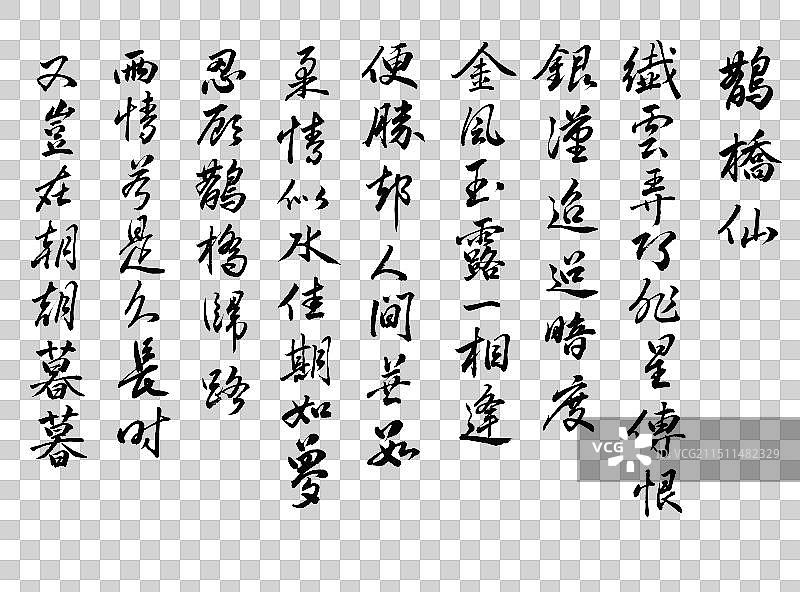 鵲橋仙
纖雲弄巧飛星傳恨
銀漢迢迢暗度
金風玉露一相逢
便勝却人間無数
柔情似水佳期如夢
忍顧鵲橋歸路
兩情若是久長时
又豈在朝朝暮暮
VCG
ID:VCG211511482329